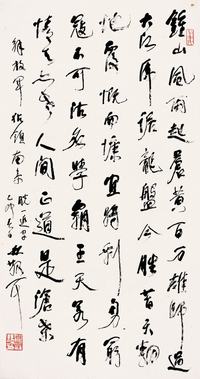 鐘山風雨起蒼黃百万雄師過
大江虎踞龍盤今勝昔天翻
地覆慨而慷宜將剩勇追窮
寇不可沽名學霸王天若有
情天亦老人間正道是滄桑
解放軍佔領南京